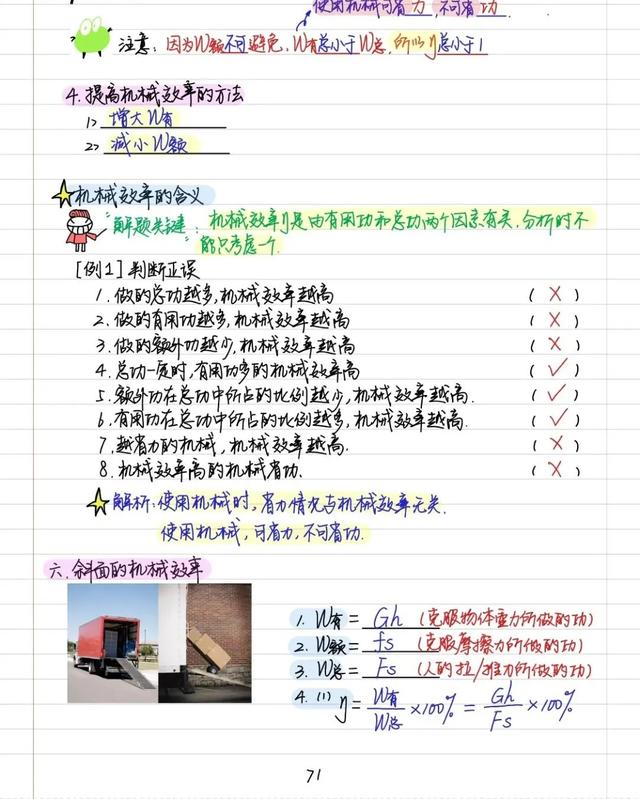 使用机械可省力,不可省功.
注意:因为W额不可避免,W有总小于W总,所以η总小于1
4.提高机械效率的方法
1>增大W有
2>减小W额
机械效率的含义
"解题关键":机械效率η是由有用功和总功两个因素有关.分析时不
能只考虑一个.
[例1]判断正误
1.做的总功越多,机械效率越高 (×)
2.做的有用功越多,机械效率越高 (×)
3.做的额外功越少,机械效率越高 (×)
4.总功一定时,有用功多的机械效率高 (✓)
5.额外功在总功中所占的比例越少,机械效率越高. (✓)
6.有用功在总功中所占的比例越多,机械效率越高. (✓)
7.越省力的机械,机械效率越高. (×)
8.机械效率高的机械省功. (×)
解析:使用机械时,省力情况与机械效率无关.
使用机械,可省力,不可省功.
六.斜面的机械效率
1. W有=Gh(克服物体重力所做的功)
2. W额=fs(克服摩擦力所做的功)
3. W总=Fs(人的拉/推力所做的功)
4.(1) η=W有/W总×100%=Gh/Fs×100%
71